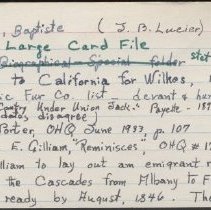 , Baptiste ( J. B. Lucier)
Large Card File
Biographical - Special folder stet
to California for Wilkes,
ic Fur Co. list - devant & hun
"Oregon Country Under Union Jack." Payette - 18
dates disagree)
Porter, OHQ June 1933, p. 107
E. Gilliam, "Reminisces." OHQ #17
illiam to lay out an emigrant r
the Cascades from Albany to F
ready by August, 1846. Th